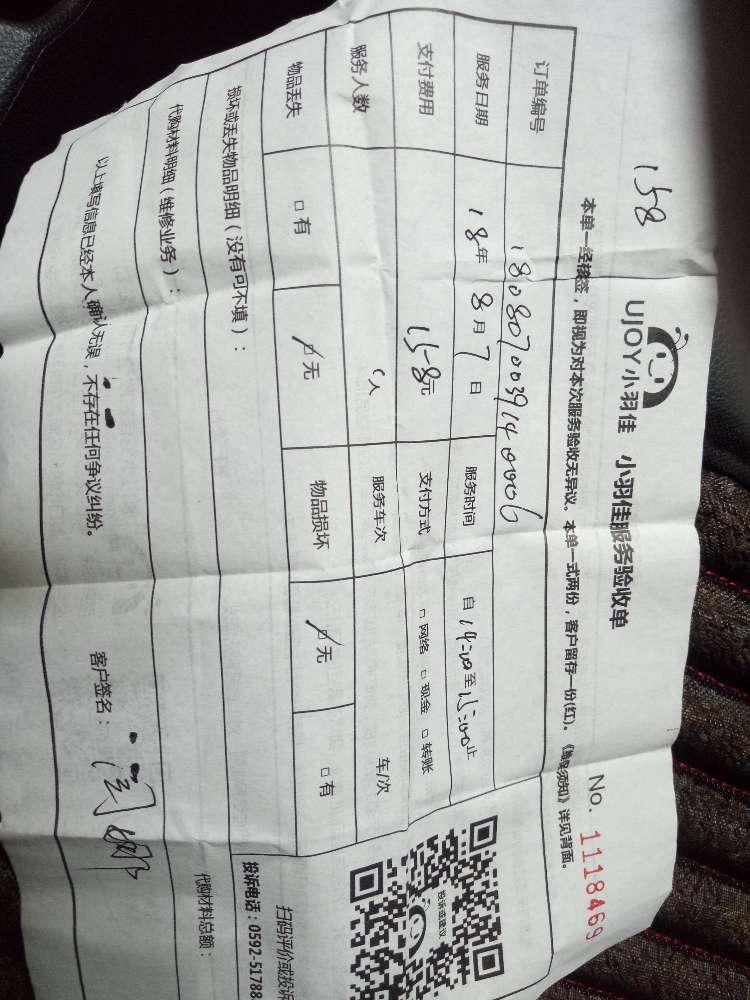 158
UJOY小羽佳 小羽佳服务验收单
No. 1118469
本单一经核签，即视为对本次服务验收无异议。本单一式两份，客户留存一份(红)。《验单须知》详见背面。
订单编号 180807003914 0006
服务日期 18年 8月7日 服务时间 自14:00至15:00止
支付费用 158元 支付方式 □网络 □现金 □转账
服务人数 人 服务车次 车/次
物品丢失 □有 □无 物品损坏 □无 □有
损坏或丢失物品明细（没有可不填）：
代购材料明细（维修业务）： 代购材料总额：
以上填写信息已经本人确认无误，不存在任何争议纠纷。 客户签名：
投诉或建议
扫码评价或投诉
投诉电话：0592-51788